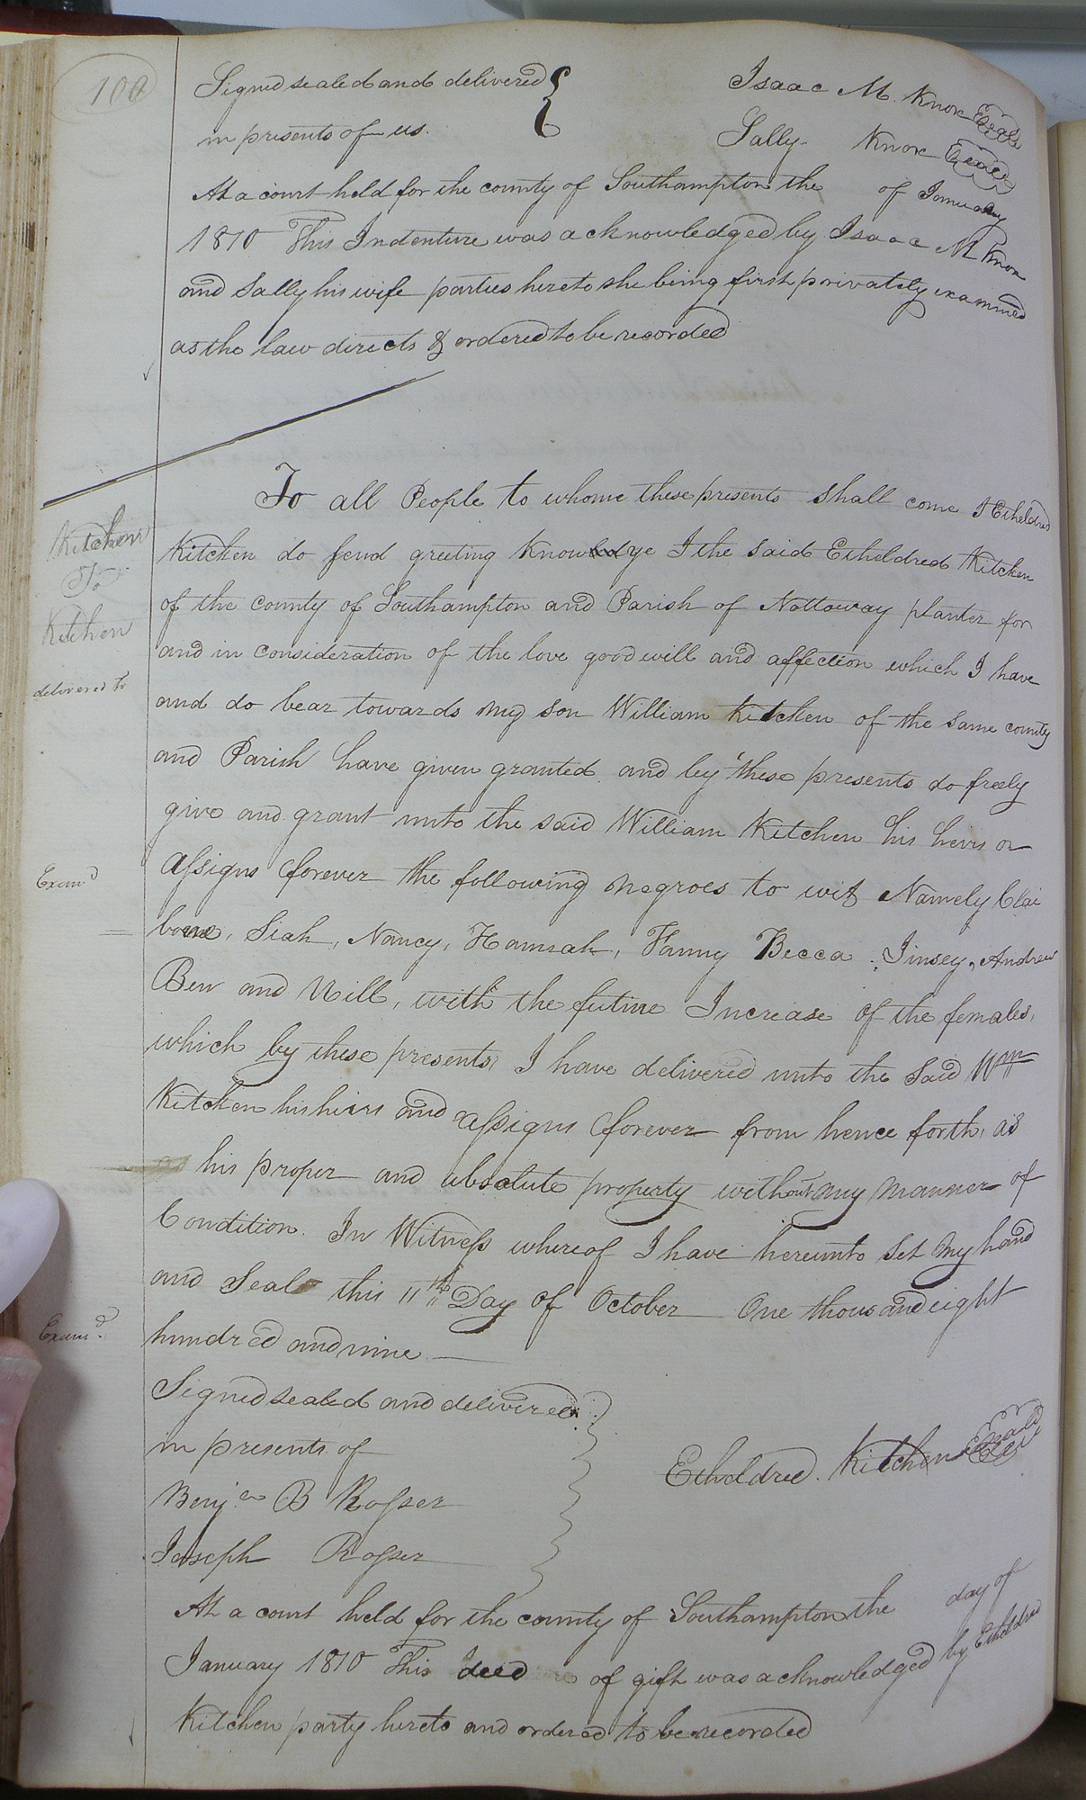 100
Signed sealed and delivered
in presents of us.
Isaac M. Knox Seal
Sally Knox Seal
At a court held for the county of Southampton the of January
1810 This Indenture was acknowledged by Isaac M Knox
and Sally his wife parties hereto she being first privately examined
as the law directs & ordered to be recorded
Kitchen
To
Kitchen
delivered to
To all People to whome these presents shall come I Etheldred
Kitchen do send greeting Know ye I the said Etheldred Kitchen
of the county of Southampton and Parish of Nottoway planter for
and in consideration of the love good will and affection which I have
and do bear towards my son William Kitchen of the same county
and Parish have given granted and by these presents do freely
give and grant unto the said William Kitchen his heirs or
Exam^d
assigns forever the following negroes to wit Namely Clai
borne, Siah, Nancy, Hannah, Fanny Becca, Jinsey, Andrew
Ben and Will, with the future Increase of the females,
which by these presents, I have delivered unto the said W^m
Kitchen his heirs and assigns forever from hence forth, as
his proper and absolute property without any manner of
Condition. In Witness whereof I have hereunto set my hand
and Seal this 11th Day of October One thousand eight
Exam^d
hundred and nine
Signed sealed and delivered
in presents of
Benj^n B Rosser
Joseph Rosser
Etheldred. Kitchen Seal
At a court held for the county of Southampton the day of
January 1810 This deed of gift was acknowledged by Etheldred
Kitchen party hereto and ordered to be recorded